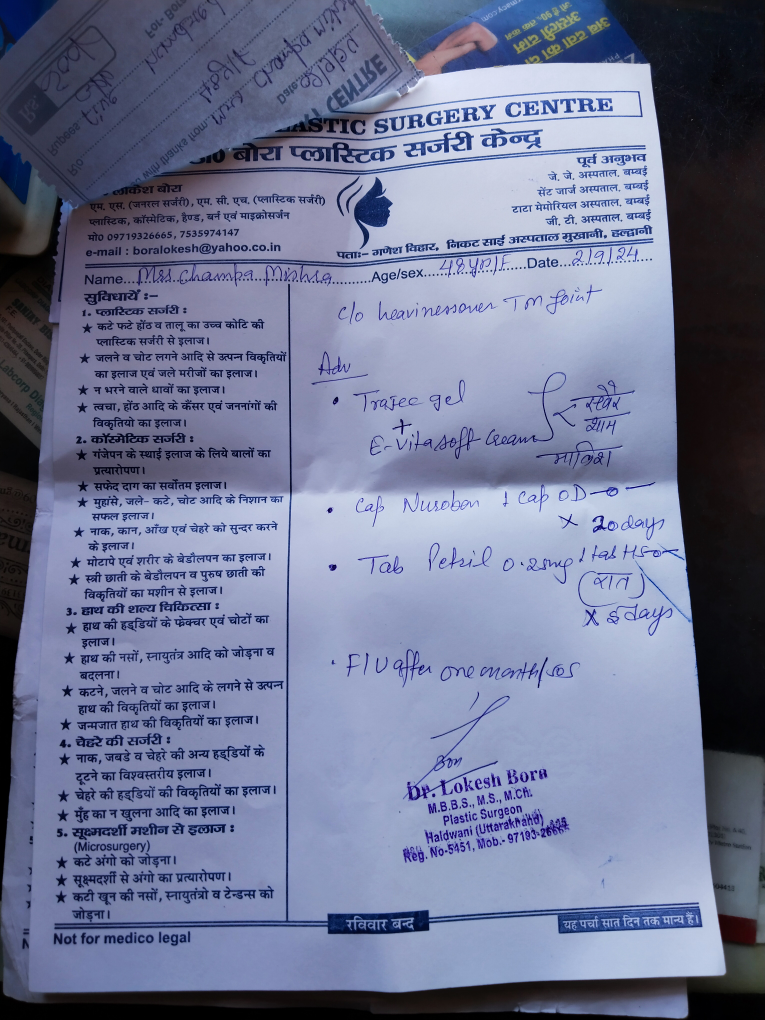 PLASTIC SURGERY CENTRE
बोरा प्लास्टिक सर्जरी केन्द्र
बोरा
एम. एस. (जनरल सर्जरी), एम. सी. एच. (प्लास्टिक सर्जरी)
प्लास्टिक, कॉस्मेटिक, हैण्ड, बर्न एवं माइक्रोसर्जन
मो0 09719326665, 7535974147
e-mail : boralokesh@yahoo.co.in
पूर्व अनुभव
जे. जे. अस्पताल, बम्बई
सेंट जार्ज अस्पताल, बम्बई
टाटा मेमोरियल अस्पताल, बम्बई
जी. टी. अस्पताल, बम्बई
पताः- गणेश विहार, निकट साई अस्पताल मुखानी, हल्द्वानी
Name Mrs. Champa Mishra Age/sex 48yr/F Date 2/9/24
सुविधायें :-
1. प्लास्टिक सर्जरी :
★ कटे फटे होंठ व तालू का उच्च कोटि की
प्लास्टिक सर्जरी से इलाज।
★ जलने व चोट लगने आदि से उत्पन्न विकृतियों
का इलाज एवं जले मरीजों का इलाज।
★ न भरने वाले घावों का इलाज।
★ त्वचा, होंठ आदि के कैंसर एवं जननांगों की
विकृतियो का इलाज।
2. कॉस्मेटिक सर्जरी :
★ गंजेपन के स्थाई इलाज के लिये बालों का
प्रत्यारोपण।
★ सफेद दाग का सर्वोतम इलाज।
★ मुहांसे, जले- कटे, चोट आदि के निशान का
सफल इलाज।
★ नाक, कान, आँख एवं चेहरे को सुन्दर करने
के इलाज।
★ मोटापे एवं शरीर के बेडौलपन का इलाज।
★ स्त्री छाती के बेडौलपन व पुरुष छाती की
विकृतियों का मशीन से इलाज।
3. हाथ की शल्य चिकित्सा :
★ हाथ की हड्डियों के फ्रेक्चर एवं चोटों का
इलाज।
★ हाथ की नसों, स्नायुतंत्र आदि को जोड़ना व
बदलना।
★ कटने, जलने व चोट आदि के लगने से उत्पन्न
हाथ की विकृतियों का इलाज।
★ जन्मजात हाथ की विकृतियों का इलाज।
4. चेहरे की सर्जरी :
★ नाक, जबडे व चेहरे की अन्य हड्डियों के
टूटने का विश्वस्तरीय इलाज।
★ चेहरे की हड्डियों की विकृतियों का इलाज।
★ मुँह का न खुलना आदि का इलाज।
5. सूक्ष्मदर्शी मशीन से इलाज :
(Microsurgery)
★ कटे अंगो को जोड़ना।
★ सूक्ष्मदर्शी से अंगो का प्रत्यारोपण।
★ कटी खून की नसों, स्नायुतंत्रो व टेन्डन्स को
जोड़ना।
c/o heaviness over TM joint
Adv
• Trasec gel
+
E-Vitasoft cream
सवेरे
शाम
मालिश
• Cap Nuroban 1 cap OD -0-
x 20 days
• Tab Petril 0.25mg 1 tab HS
(रात)
x 5 days
• F/U after one month/sos
Dr. Lokesh Bora
M.B.B.S., M.S., M.CH.
Plastic Surgeon
Haldwani (Uttarakhand)
Reg. No-5451, Mob.- 97193-26665
Not for medico legal
रविवार बन्द
यह पर्चा सात दिन तक मान्य है।